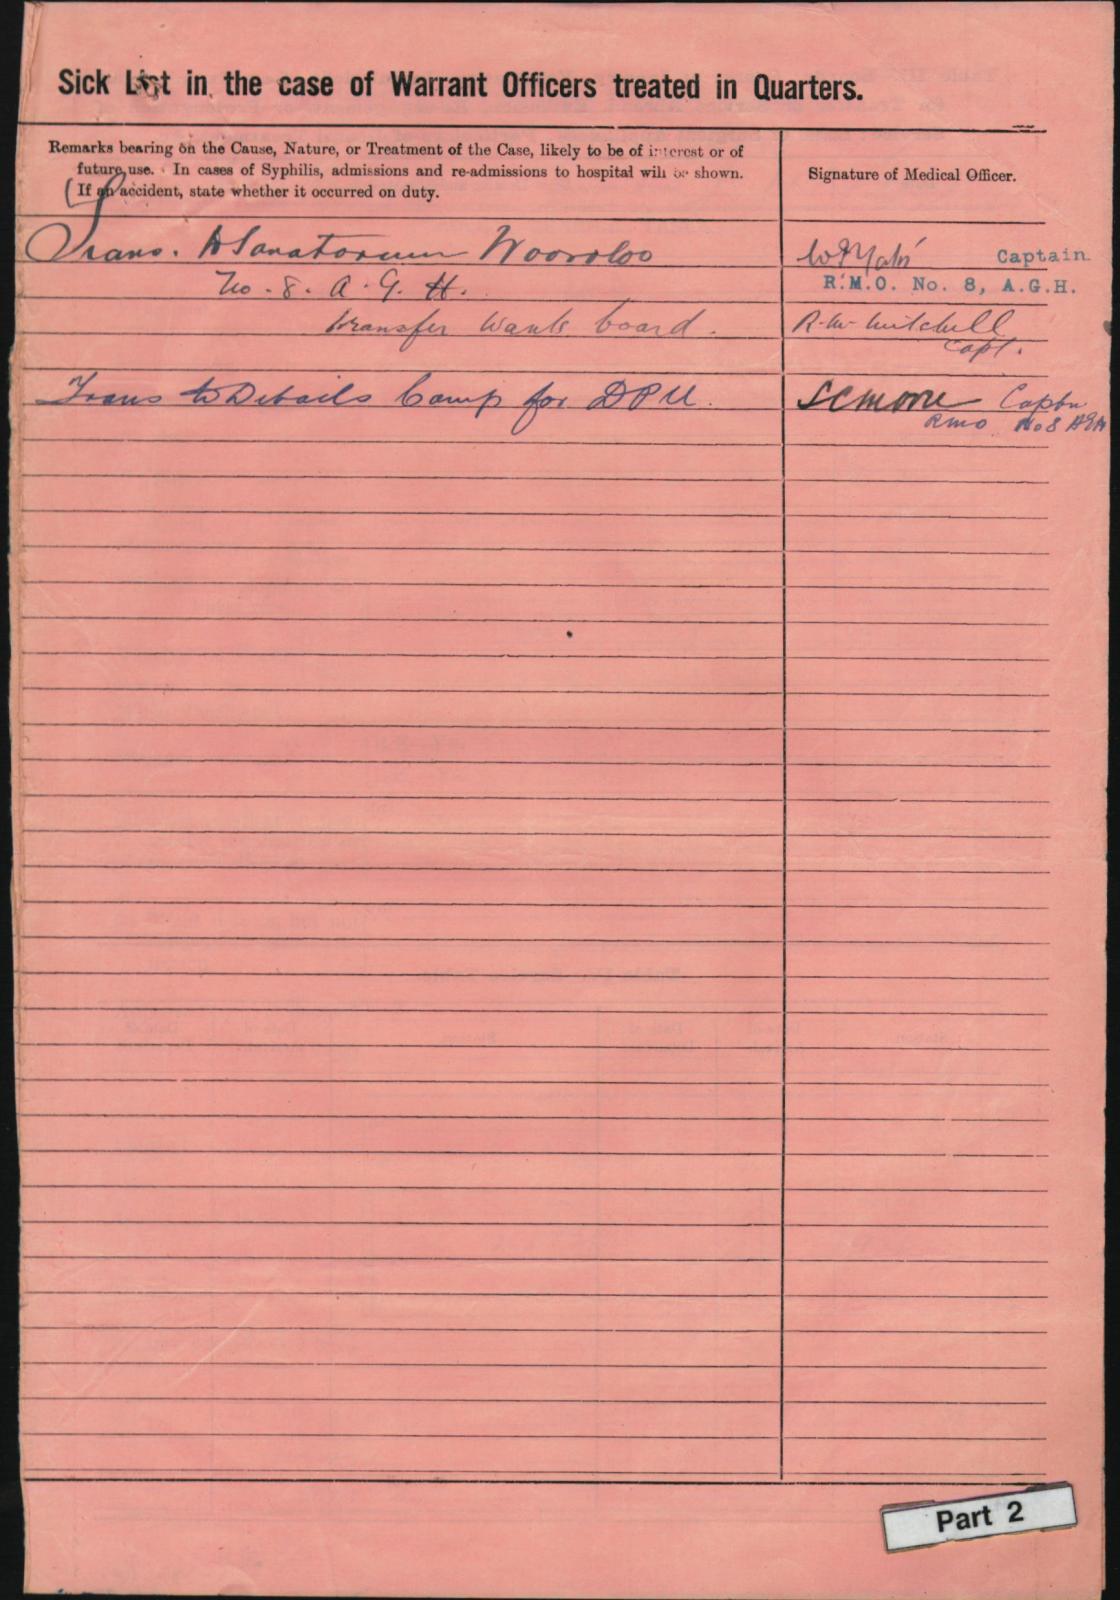 Sick List in the case of Warrant Officers treated in Quarters.
Remarks bearing on the Cause, Nature, or Treatment of the Case, likely to be of interest or of
future use. In cases of Syphilis, admissions and re-admissions to hospital will be shown.
(If an accident, state whether it occurred on duty.
Signature of Medical Officer.
Trans. to Sanatorium Wooroloo
Captain
No. 8. A. G. H.
R.M.O. No. 8, A.G.H.
transfer wants board.
R. W. Mitchell
Capt.
Trans to Details Camp for DPU.
SCMoore Captn
RMO No 8 AGH
Part 2